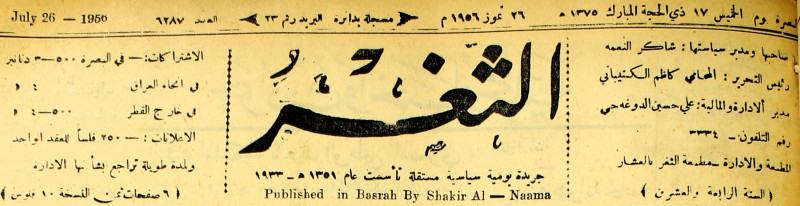 البصرة يوم الخميس ١٧ ذي الحجة المبارك ١٣٧٥ هـ ٢٦ تموز ١٩٥٦ م مسجلة بدائرة البريد رقم ٢٣ العدد ٦٢٨٧ July 26 - 1956
صاحبها ومدير سياستها : شاكر النعمه
رئيس التحرير : المحامي كاظم الكشيباني
مدير الادارة والمالية : علي حسين الدوغه جي
رقم التلفون - ٣٣٣٤
المطبعة والادارة - مطبعة الثغر بالعشار
( السنة الرابعة والعشرين )
الثغر
جريدة يومية سياسية مستقلة تأسست عام ١٣٥١ هـ - ١٩٣٣
Published in Basrah By Shakir Al — Naama
الاشتراكات :— في البصرة ٥٠٠-٣ دنانير
في انحاء العراق ٤ »
في خارج القطر ٥٠٠-٤ »
الاعلانات :— ٢٥٠ فلساً للعقد الواحد
ولمدة طويلة تراجع بشأنها الادارة
( ٦ صفحات ثمن النسخة ١٠ فلوس )